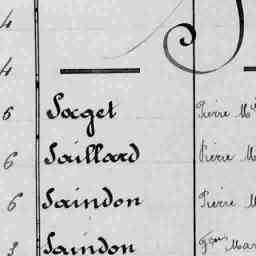 4
4
6 Saget Pierre M
6 Saillard Pierre M
6 Saindon Pierre M
3 Saindon Mar